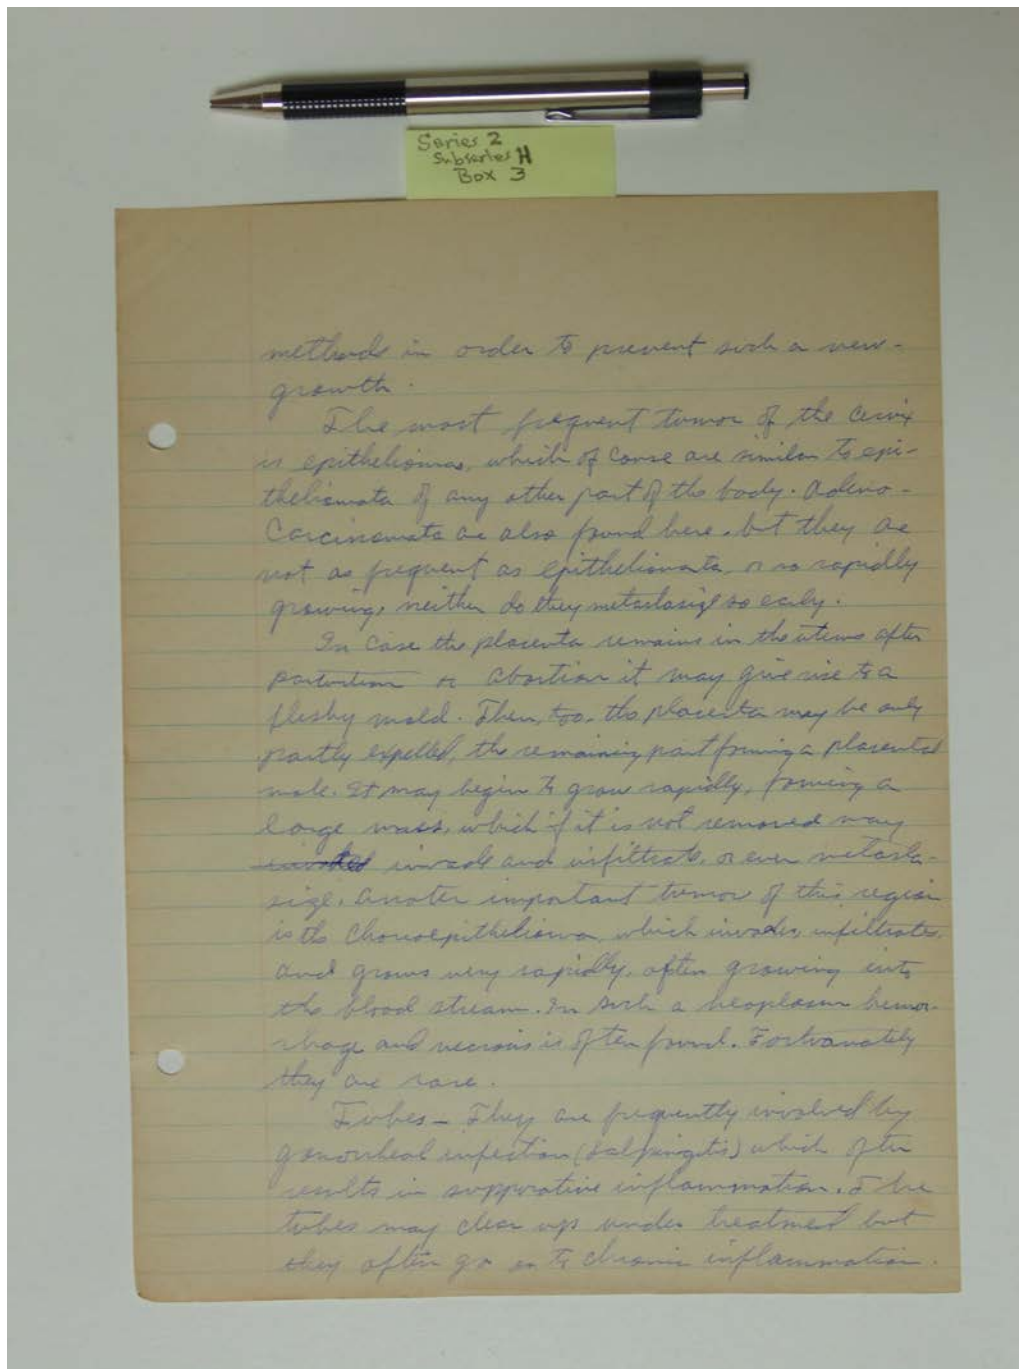 Series 2
Subseries H
Box 3
methods in order to prevent such a new-
growth.
The most frequent tumor of the cervix
is epitheliomas, which of course are similar to epi-
theliomata of any other part of the body. Adeno-
carcinomata are also found here, but they are
not as frequent as epitheliomata, or so rapidly
growing, neither do they metastasize so early.
In case the placenta remains in the uterus after
parturition or abortion it may give rise to a
fleshy mold. Then, too, the placenta may be only
partly expelled, the remaining part forming a placental
mole. It may begin to grow rapidly, forming a
large mass, which if it is not removed may
invade and infiltrate, or even metasta-
size. Another important tumor of this region
is the Chorioepithelioma, which invades, infiltrates,
and grows very rapidly, often growing into
the blood stream. In such a neoplasm hemor-
rhage and necrosis is often found. Fortunately
they are rare.
Tubes - They are frequently involved by
gonorrheal infection (salpingitis) which often
results in suppurative inflammation. The
tubes may clear up under treatment but
they often go on to chronic inflammation.